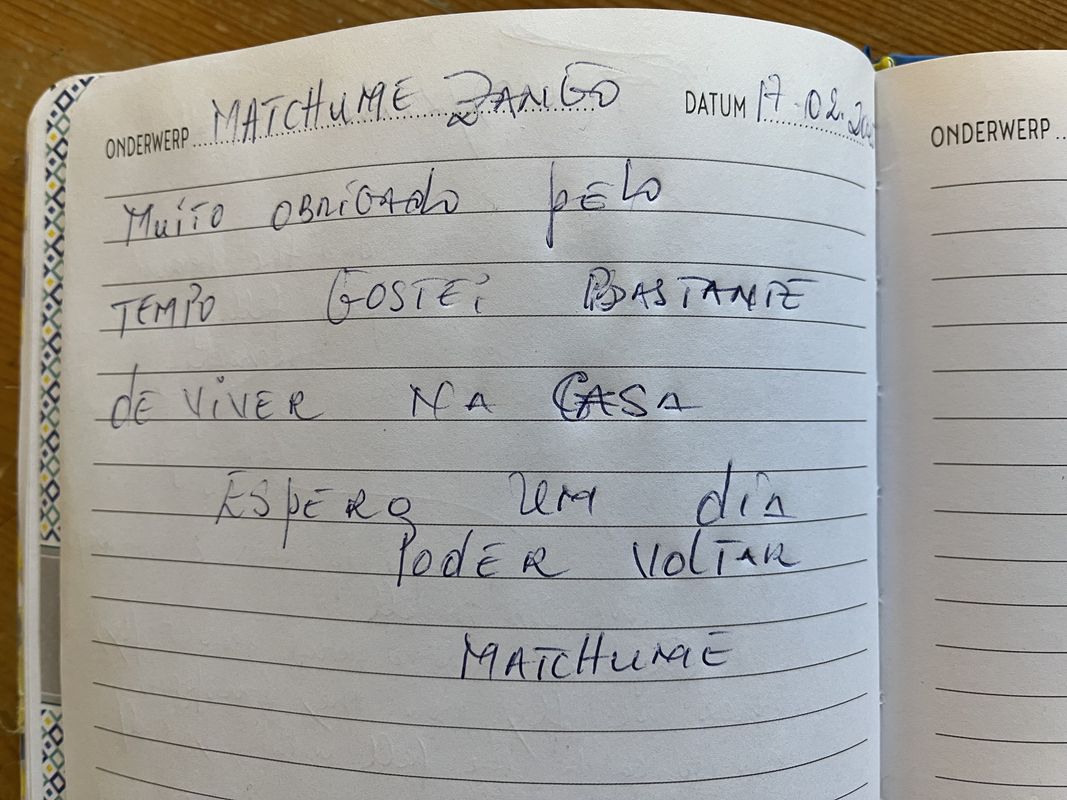 ONDERWERP MATCHUME ZANGO DATUM 17-02.
MUITO OBRIGADO PELO
TEMPO GOSTEI BASTANTE
de VIVER NA CASA
ESPERO UM dia
PODER VOLTAR
MATCHUME
ONDERWERP